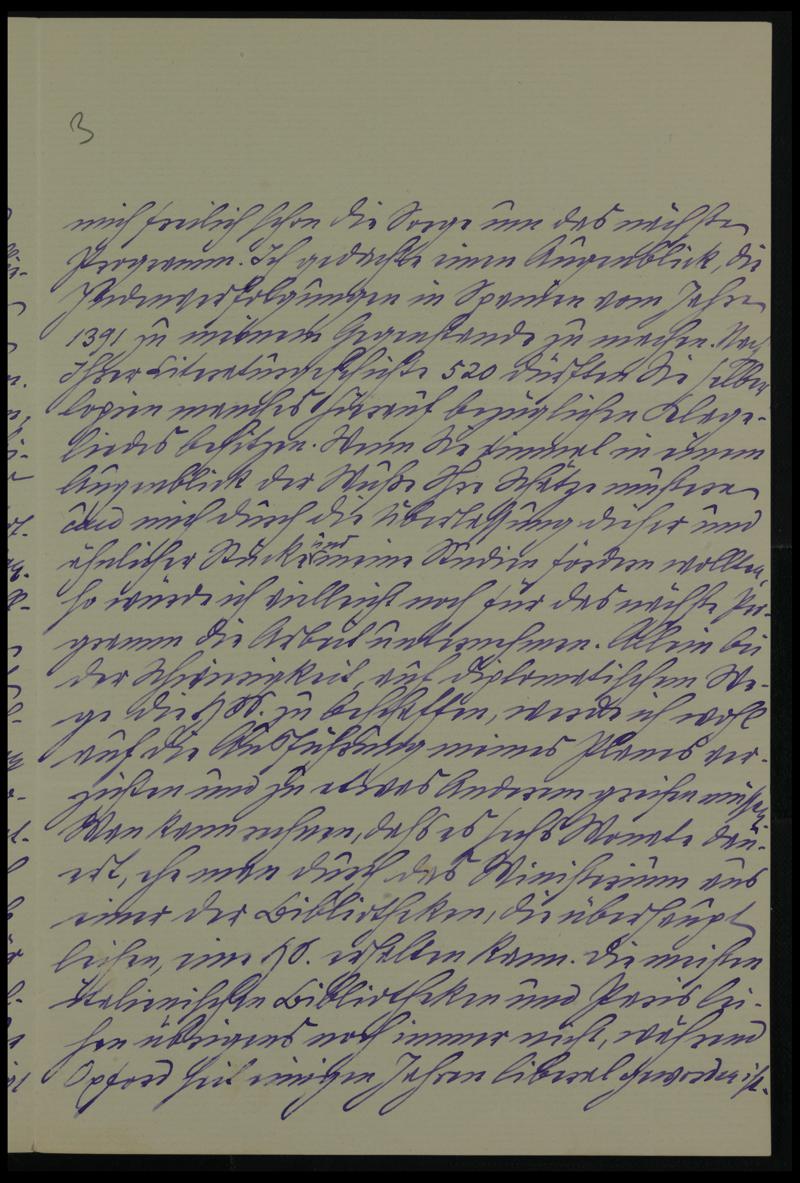 3
mich freilich schon die Sorge um das nächste
Programm. Ich gedachte einen Augenblick, die
Judenverfolgungen in Spanien vom Jahre
1391 zu meinem Gegenstande zu machen. Nach
Ihrer Literaturgeschichte 520 dürften Sie selber
Copien manches hierauf bezüglichen Klage-
liedes besitzen. Wenn Sie einmal in einem
Augenblick der Muße Ihre Schätze mustern
und mich durch die Überlassung dieser und
ähnlicher Stücke in meine Studien fördern wollten,
so würde ich vielleicht noch für das nächste Pro-
gramm die Arbeit unternehmen. Allein bei
der Schwierigkeit, auf diplomatischem We-
ge die HSS. zu beschaffen, werde ich wohl
auf die Ausführung meines Planes ver-
zichten und zu etwas Anderem greifen müssen.
Man kann rechnen, dass es sechs Monate dau-
ert, ehe man durch das Ministerium aus
einer der Bibliotheken, die überhaupt
leihen, eine HS. erhalten kann. Die meisten
italienischen Bibliotheken und Paris lei-
hen übrigens noch immer nicht, während
Oxford seit einigen Jahren liberal geworden ist.